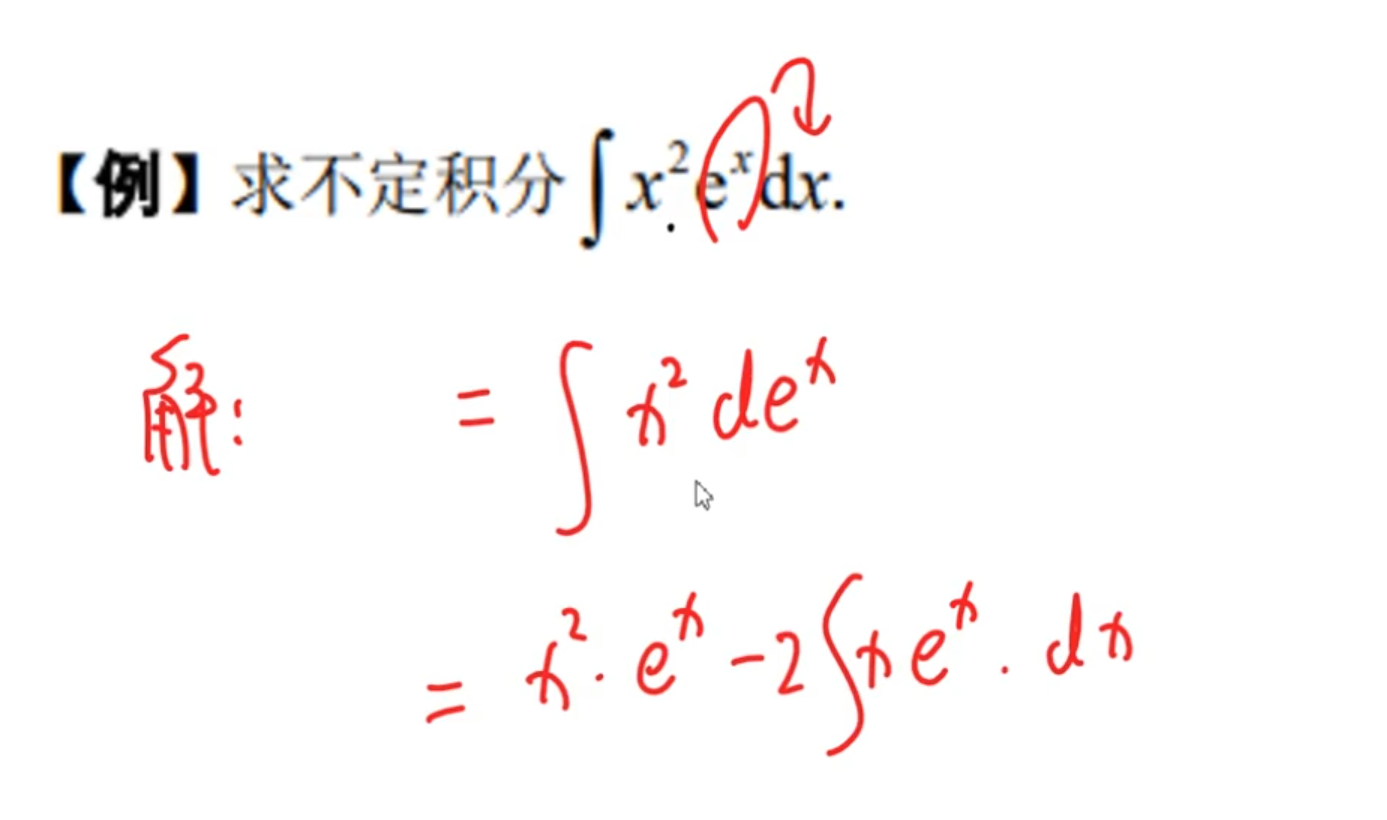 【例】求不定积分∫x²eˣdx.
解: = ∫x² deˣ
= x²·eˣ-2∫xeˣ·dx